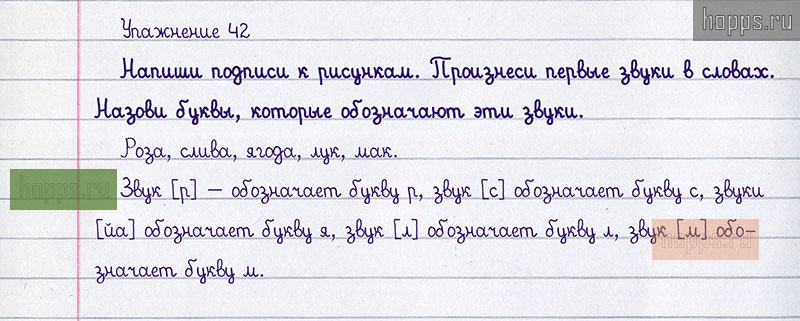 hopps.ru
Упажнение 42
Напиши подписи к рисункам. Произнеси первые звуки в словах.
Назови буквы, которые обозначают эти звуки.
Роза, слива, ягода, лук, мак.
hopps.ru
Звук [р] — обозначает букву р, звук [с] обозначает букву с, звуки
[йа] обозначает букву я, звук [л] обозначает букву л, звук [м] обо-
hopps.ru
значает букву м.